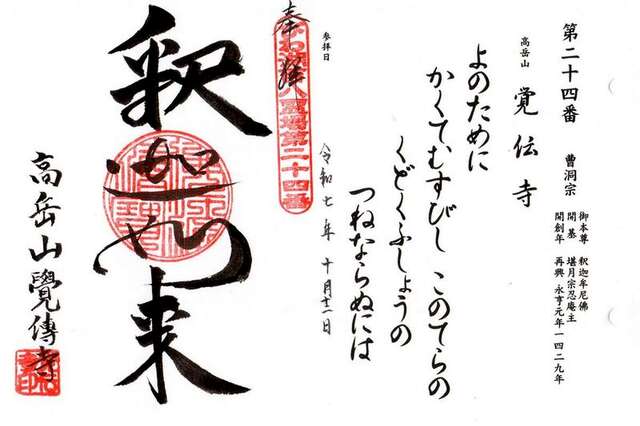 第二十四番 曹洞宗
御本尊 釈迦牟尼佛
開基 堪月宗忍庵主
開創年 再興 永亨元年一四二九年
高岳山 覚伝寺
よのために
かくてむすびし このてらの
くどくふしょうの
つねならぬには
参拝日
令和七年 十月十二日
奉拝
八霊場第二十四番
釈迦如来
高岳山覺傳寺